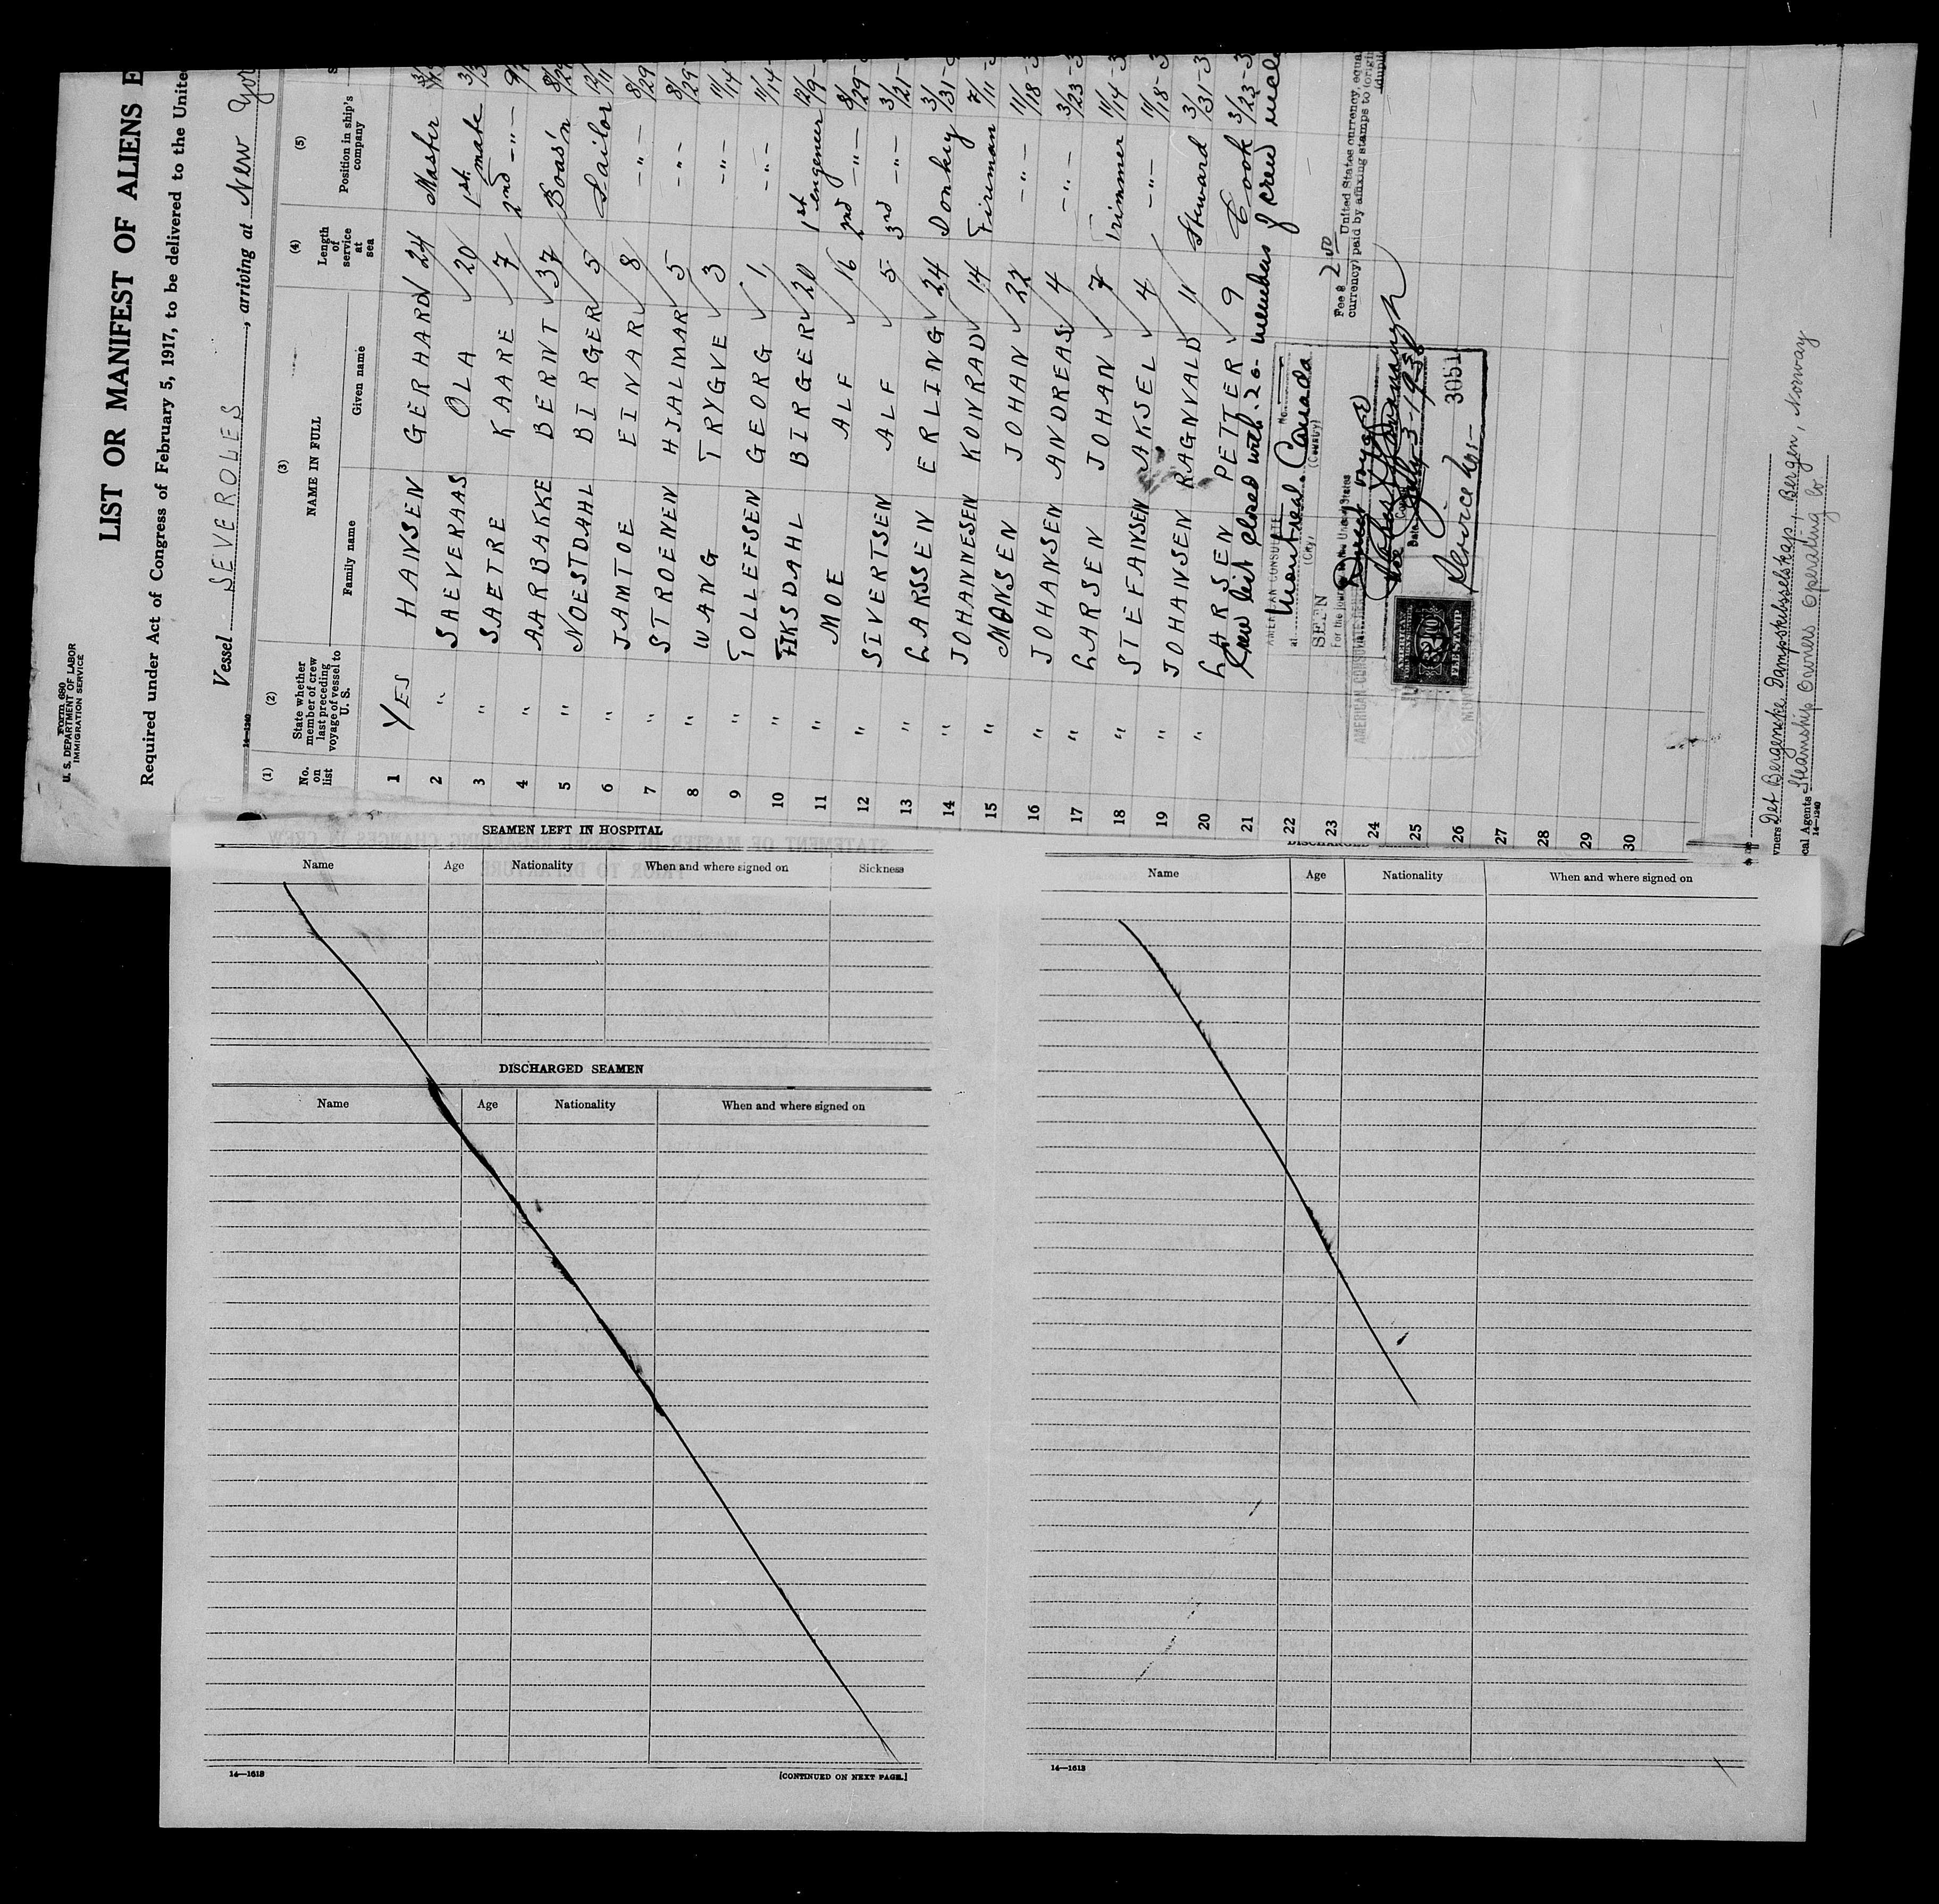 Form 680
U. S. DEPARTMENT OF LABOR
IMMIGRATION SERVICE
LIST OR MANIFEST OF ALIENS E
Required under Act of Congress of February 5, 1917, to be delivered to the Unite
Vessel SEVEROLES, arriving at New Yor
14—1240
(1) (2) (3) (4) (5)
No. on list
State whether member of crew last preceding voyage of vessel to U. S.
NAME IN FULL
Family name Given name
Length of service at sea
Position in ship's company
1 YES HANSEN GERHARD 24 Master
2 " SAEVERAAS OLA 20 1st mate 3/3
3 " SAETRE KAARE 7 2nd -"-
4 " AARBAKKE BERNT 37 Boas'n 8/29
5 " NOESTDAHL BIRGER 5 Sailor 12/11
6 " JAMTOE EINAR 8 -"- 8/29
7 " STROENEN HJALMAR 5 -"- 8/29-
8 " WANG TRYGVE 3 -"- 11/14
9 " TOLLEFSEN GEORG 1 -"- 11/14-
10 " FIKSDAHL BIRGER 20 1st engeneer 12/9-
11 " MOE ALF 16 2nd -"- 8/29-
12 " SIVERTSEN ALF 5 3rd -"- 3/21-
13 " LARSSEN ERLING 24 Donkey 3/31-
14 " JOHANNESEN KONRAD 14 Fireman 7/11-3
15 " MONSEN JOHAN 22 -"- 11/18-3
16 " JOHANSEN ANDREAS 4 -"- 3/23-3
17 " LARSEN JOHAN 7 Trimmer 11/14-3
18 " STEFANSEN AKSEL 4 -"- 11/18-3
19 " JOHANSEN RAGNVALD 11 Steward 3/31-3
20 " LARSEN PETTER 9 Cook 3/23-3
21 Crew list closed with 20- members of crew incl
22
23
24
25
26
27
28
29
30
AMERICAN CONSULATE No.
at Montreal Canada
(City) (Country)
SEEN
For the journey to the United States
voyage
Consul
Date July-3-1930
Service No- 3051
AMERICAN
FEE STAMP
Fee $ 2 00 United States currency, equal
currency) paid by affixing stamps to (origin
(dupli
wners Det Bergenske Dampskibsselskap, Bergen, Norway
ocal Agents Steamship Owners Operating Co
14—1240
SEAMEN LEFT IN HOSPITAL
Name Age Nationality When and where signed on Sickness
DISCHARGED SEAMEN
Name Age Nationality When and where signed on
14—1613 [CONTINUED ON NEXT PAGE.]
DISCHARGED
Name Age Nationality When and where signed on
14—1613